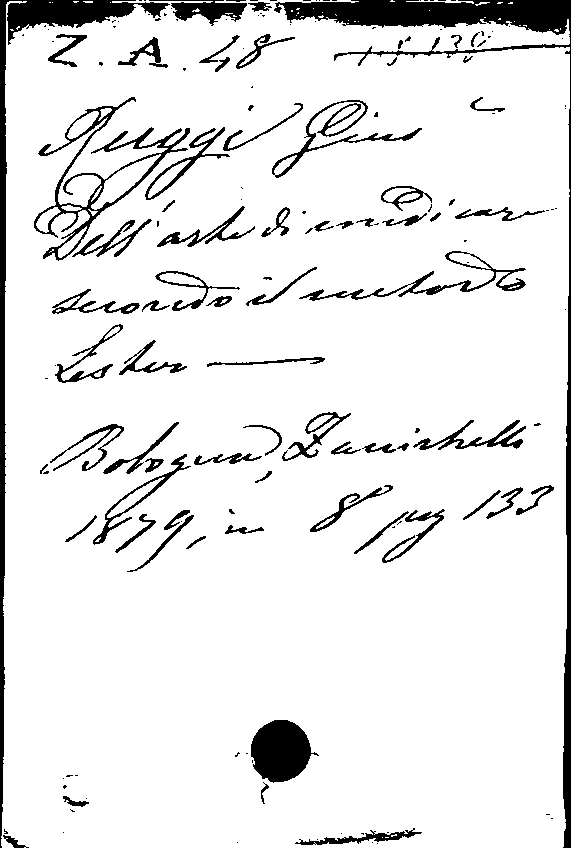 Z. A. 48
Ruggi Gius
Dell' arte di medicare
secondo il metodo
Lister —
Bologna, Zanichelli
1879, in 8° pag 133